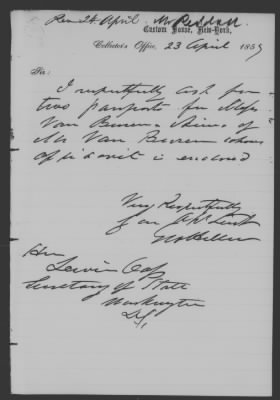 Rec 24 April. Mr Reddall
Custom House, New-York,
Collector's Office, 23 April 1859
Sir:
I respectfully ask for
two passports for Mess
Van Buren &
Mr Van Buren whose
affidavit is enclosed
Very Respectfully
I am
Hon
Lewis Cass
Secretary of State
Washington